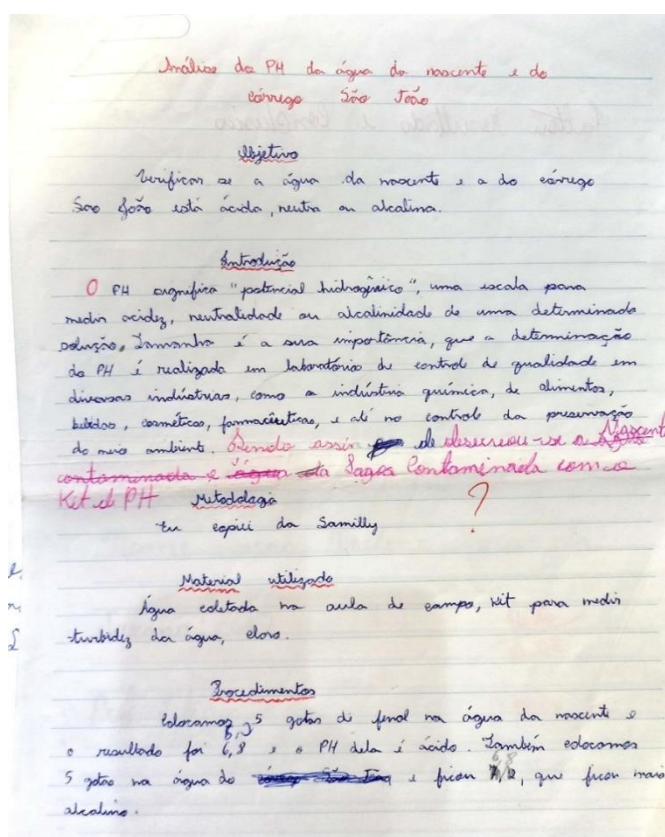 Análise do PH da água da nascente e do
córrego São João
Objetivo
Verificar se a água da nascente e a do córrego
São João está ácida, neutra ou alcalina.
Introdução
O PH significa "potencial hidrogênico", uma escala para
medir acidez, neutralidade ou alcalinidade de uma determinada
solução. Tamanha é a sua importância, que a determinação
do PH é realizada em laboratórios de control de qualidade em
diversas indústrias, como a indústria química, de alimentos,
bebidas, cosméticos, farmacêuticas, e até no control da preservação
do meio ambiente. Sendo assim de Nascente
contaminada e água da Lagoa Contaminada com o
Kit de PH
Metodologia ?
Eu copiei da Samilly
Material utilizado
Água coletada na aula de campo, kit para medir
turbidez da água, cloro.
Procedimentos
Colocamos 5 gotas de fenol na água da nascente e
o resultado foi 6,8 e o PH dela é ácido. Também colocamos
5 gotas na água do e ficou 6,8, que ficou mais
alcalino.